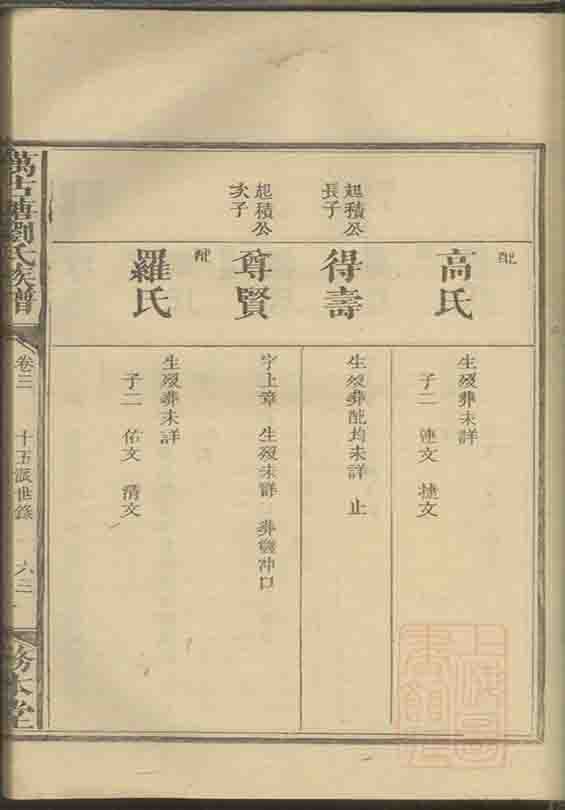 配
高氏
生歿葬未詳
子二 連文 捷文
起積公
長子
得壽
生歿葬配均未詳 止
起積公
次子
尊賢
字上章 生歿未詳 葬龔冲口
配
羅氏
生歿葬未詳
子二 佑文 清文
萬古塘劉氏族譜
卷三 十五派世錄 六二
務本堂